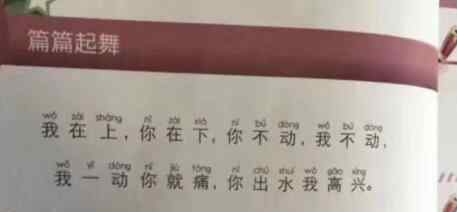 篇篇起舞
wǒ zài shàng nǐ zài xià nǐ bú dòng wǒ bú dòng
我在上,你在下,你不动,我不动,
wǒ yī dòng nǐ jiù tòng nǐ chū shuǐ wǒ gāo xìng
我一动你就痛,你出水我高兴。